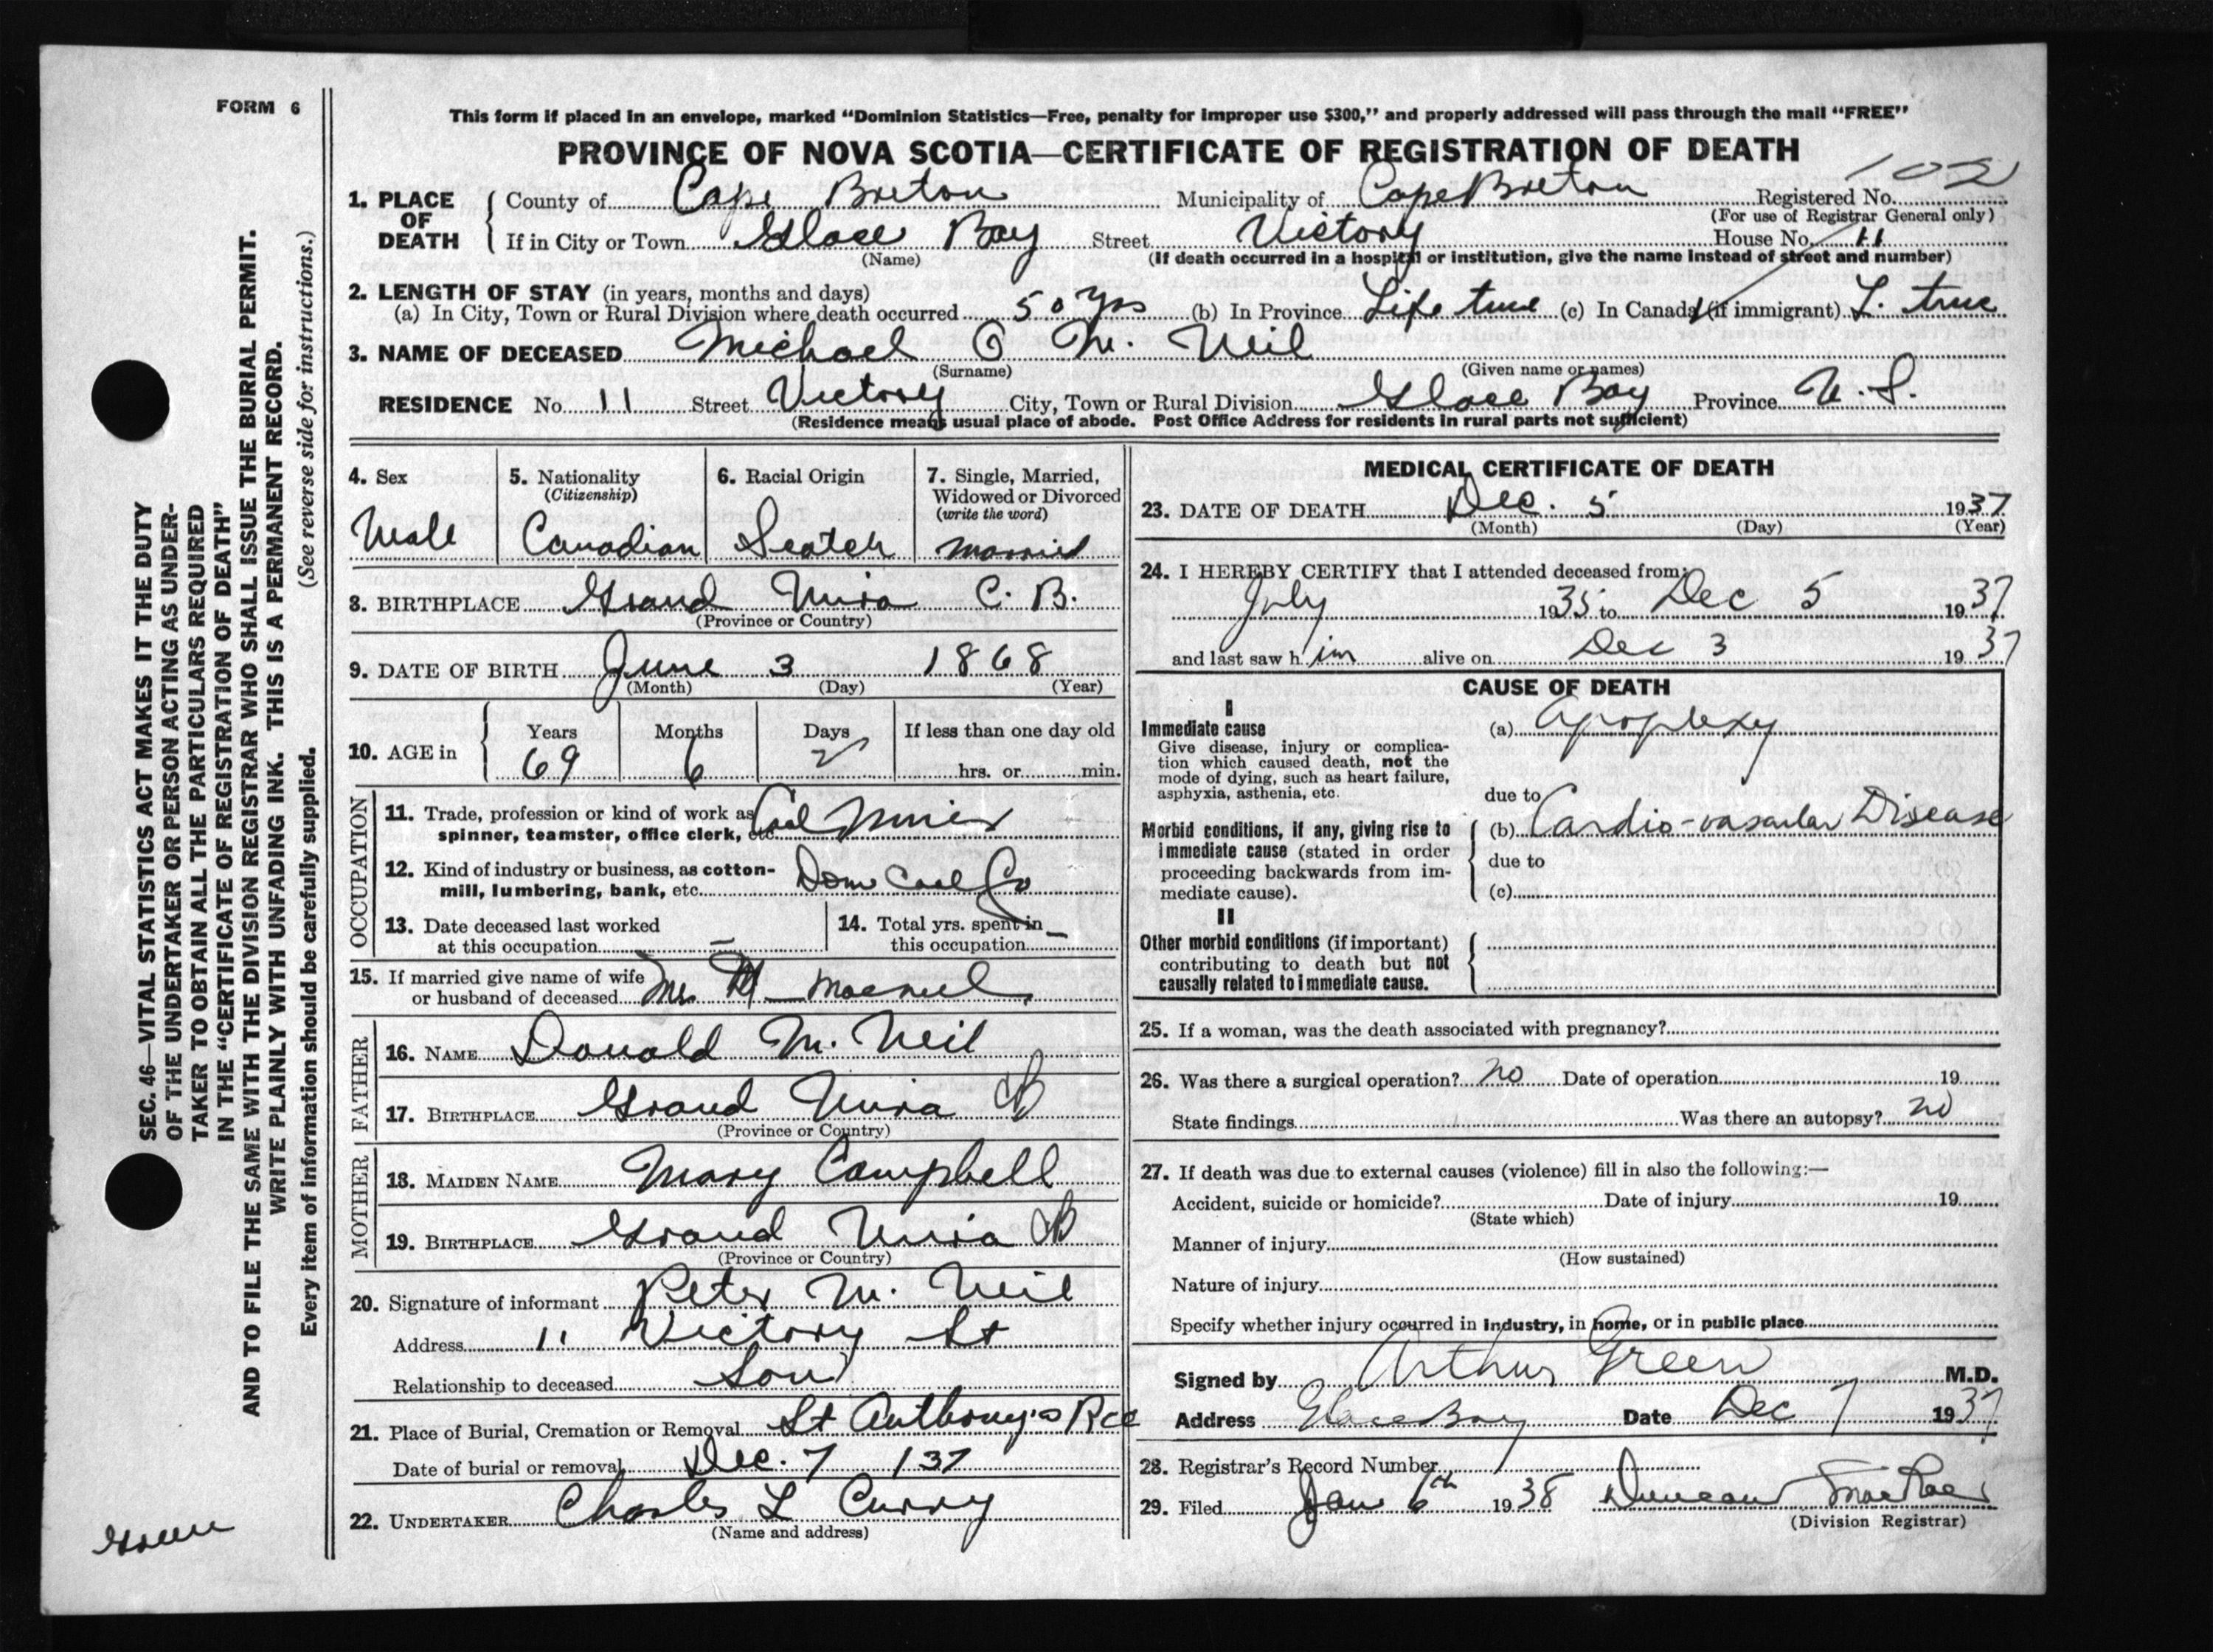 FORM 6
SEC. 46—VITAL STATISTICS ACT MAKES IT THE DUTY
OF THE UNDERTAKER OR PERSON ACTING AS UNDER-
TAKER TO OBTAIN ALL THE PARTICULARS REQUIRED
IN THE "CERTIFICATE OF REGISTRATION OF DEATH"
AND TO FILE THE SAME WITH THE DIVISION REGISTRAR WHO SHALL ISSUE THE BURIAL PERMIT.
WRITE PLAINLY WITH UNFADING INK. THIS IS A PERMANENT RECORD.
Every item of information should be carefully supplied. (See reverse side for instructions.)
This form if placed in an envelope, marked "Dominion Statistics—Free, penalty for improper use $300," and properly addressed will pass through the mail "FREE"
PROVINCE OF NOVA SCOTIA—CERTIFICATE OF REGISTRATION OF DEATH
102
1. PLACE OF DEATH
County of Cape Breton Municipality of Cape Breton Registered No.
(For use of Registrar General only)
If in City or Town Glace Bay Street Victory House No. 11
(Name) (If death occurred in a hospital or institution, give the name instead of street and number)
2. LENGTH OF STAY (in years, months and days)
(a) In City, Town or Rural Division where death occurred 50 yrs (b) In Province Life time (c) In Canada (if immigrant) L. time
3. NAME OF DECEASED Michael O Mc. Neil
(Surname) (Given name or names)
RESIDENCE No. 11 Street Victory City, Town or Rural Division Glace Bay Province N. S.
(Residence means usual place of abode. Post Office Address for residents in rural parts not sufficient)
4. Sex
Male
5. Nationality
(Citizenship)
Canadian
6. Racial Origin
Scotch
7. Single, Married,
Widowed or Divorced
(write the word)
Married
8. BIRTHPLACE Grand Mira C. B.
(Province or Country)
9. DATE OF BIRTH June 3 1868
(Month) (Day) (Year)
10. AGE in
Years Months Days If less than one day old
69 6 2 hrs. or min.
OCCUPATION
11. Trade, profession or kind of work as
spinner, teamster, office clerk, etc. Coal Miner
12. Kind of industry or business, as cotton-
mill, lumbering, bank, etc. Dom Coal Co
13. Date deceased last worked
at this occupation —
14. Total yrs. spent in
this occupation —
15. If married give name of wife
or husband of deceased Mrs M. Macneil
FATHER
16. NAME Donald Mc. Neil
17. BIRTHPLACE Grand Mira CB
(Province or Country)
MOTHER
18. MAIDEN NAME Mary Campbell
19. BIRTHPLACE Grand Mira CB
(Province or Country)
20. Signature of informant Peter Mc. Neil
Address 11 Victory St
Relationship to deceased Son
21. Place of Burial, Cremation or Removal St Anthony's
Date of burial or removal Dec. 7 /37
22. UNDERTAKER Charles L Curry
(Name and address)
MEDICAL CERTIFICATE OF DEATH
23. DATE OF DEATH Dec. 5 1937
(Month) (Day) (Year)
24. I HEREBY CERTIFY that I attended deceased from:
July 1935 to Dec 5 1937
and last saw him alive on Dec 3 1937
CAUSE OF DEATH
I
Immediate cause
Give disease, injury or complica-
tion which caused death, not the
mode of dying, such as heart failure,
asphyxia, asthenia, etc.
(a) Apoplexy
due to
Morbid conditions, if any, giving rise to
immediate cause (stated in order
proceeding backwards from im-
mediate cause).
(b) Cardio-vascular Disease
due to
(c)
II
Other morbid conditions (if important)
contributing to death but not
causally related to immediate cause.
25. If a woman, was the death associated with pregnancy?
26. Was there a surgical operation? no Date of operation 19
State findings Was there an autopsy? no
27. If death was due to external causes (violence) fill in also the following:—
Accident, suicide or homicide? Date of injury 19
(State which)
Manner of injury
(How sustained)
Nature of injury
Specify whether injury occurred in industry, in home, or in public place
Signed by Arthur Green M.D.
Address Glace Bay Date Dec 7 1937
28. Registrar's Record Number
29. Filed Jan 6th 1938 Duncan MacRae
(Division Registrar)